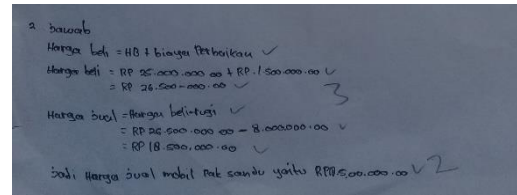 2 Jawab
Harga beli = HB + biaya Perbaikan ✓
Harga beli = RP 25.000.000 00 + RP. 1 500.000.00 ✓
= RP 26.500-000.00 ✓
3
Harga Jual = Harga beli-rugi ✓
= RP 26 500.000 00 - 8.000.000.00 ✓
= RP 18.500,000.00 ✓
Jadi Harga Jual mobil Pak sandu yaitu RP18.5,00.000.00 ✓ 2